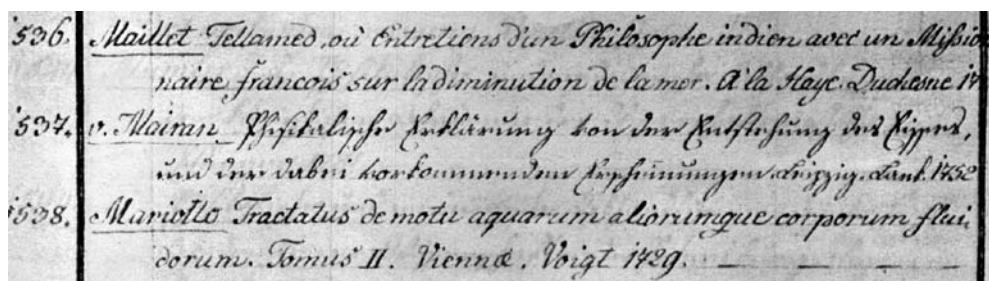 536. Maillet Tellamed, où Entretiens d'un Philosophe indien avec un Missio
naire francois sur la diminution de la mer. A la Haye. Duchesne 17
537. v. Mairan Phisikalische Erklärung von der Entstehung des Eisses,
und der dabei vorkommenden Erscheinungen. Leipzig. Lank. 1752
538. Mariotto Tractatus de motu aquarum aliorumque corporum flui.
dorum. Tomus II. Viennæ. Voigt 1729. — — — —